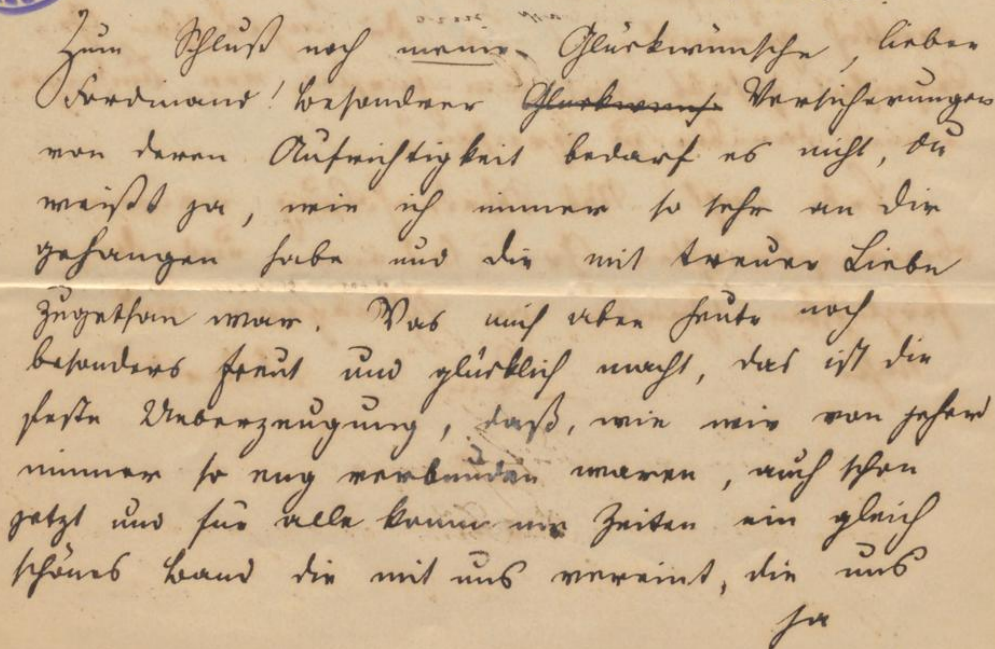 Zum Schluß noch meine Glückwünsche, lieber
Ferdinand! Besonderer Glückwunsch Versicherungen
von deren Aufrichtigkeit bedarf es nicht, du
weißt ja, wie ich immer so sehr an dir
gehangen habe und dir mit treuer Liebe
zugethan war. Was mich aber heute noch
besonders freut und glücklich macht, das ist die
feste Ueberzeugung, daß, wie wir von jeher
immer so eng verbunden waren, auch schon
jetzt und für alle kommenden Zeiten ein gleich
schönes Band die mit uns vereint, die uns
ja